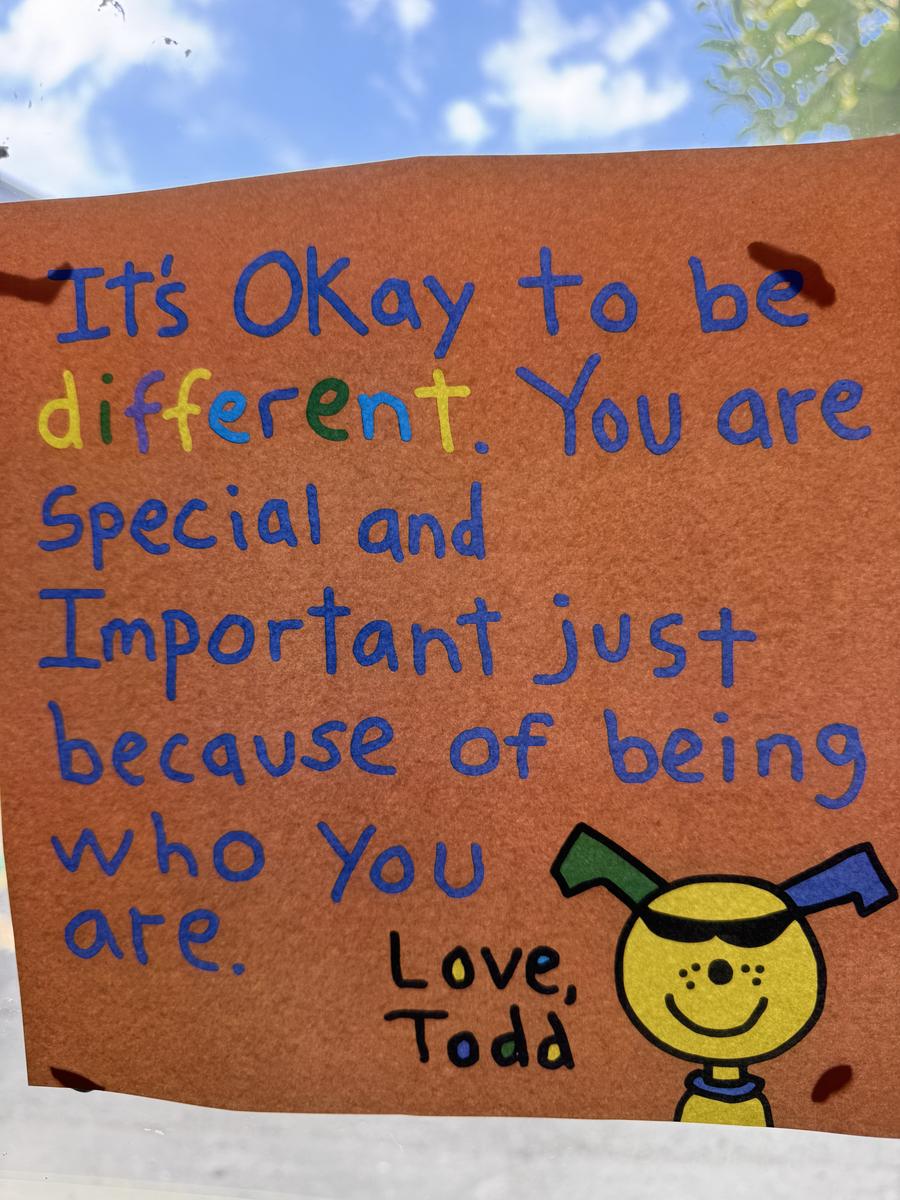 It's Okay to be
different. You are
Special and
Important just
because of being
who You
are.
Love,
Todd